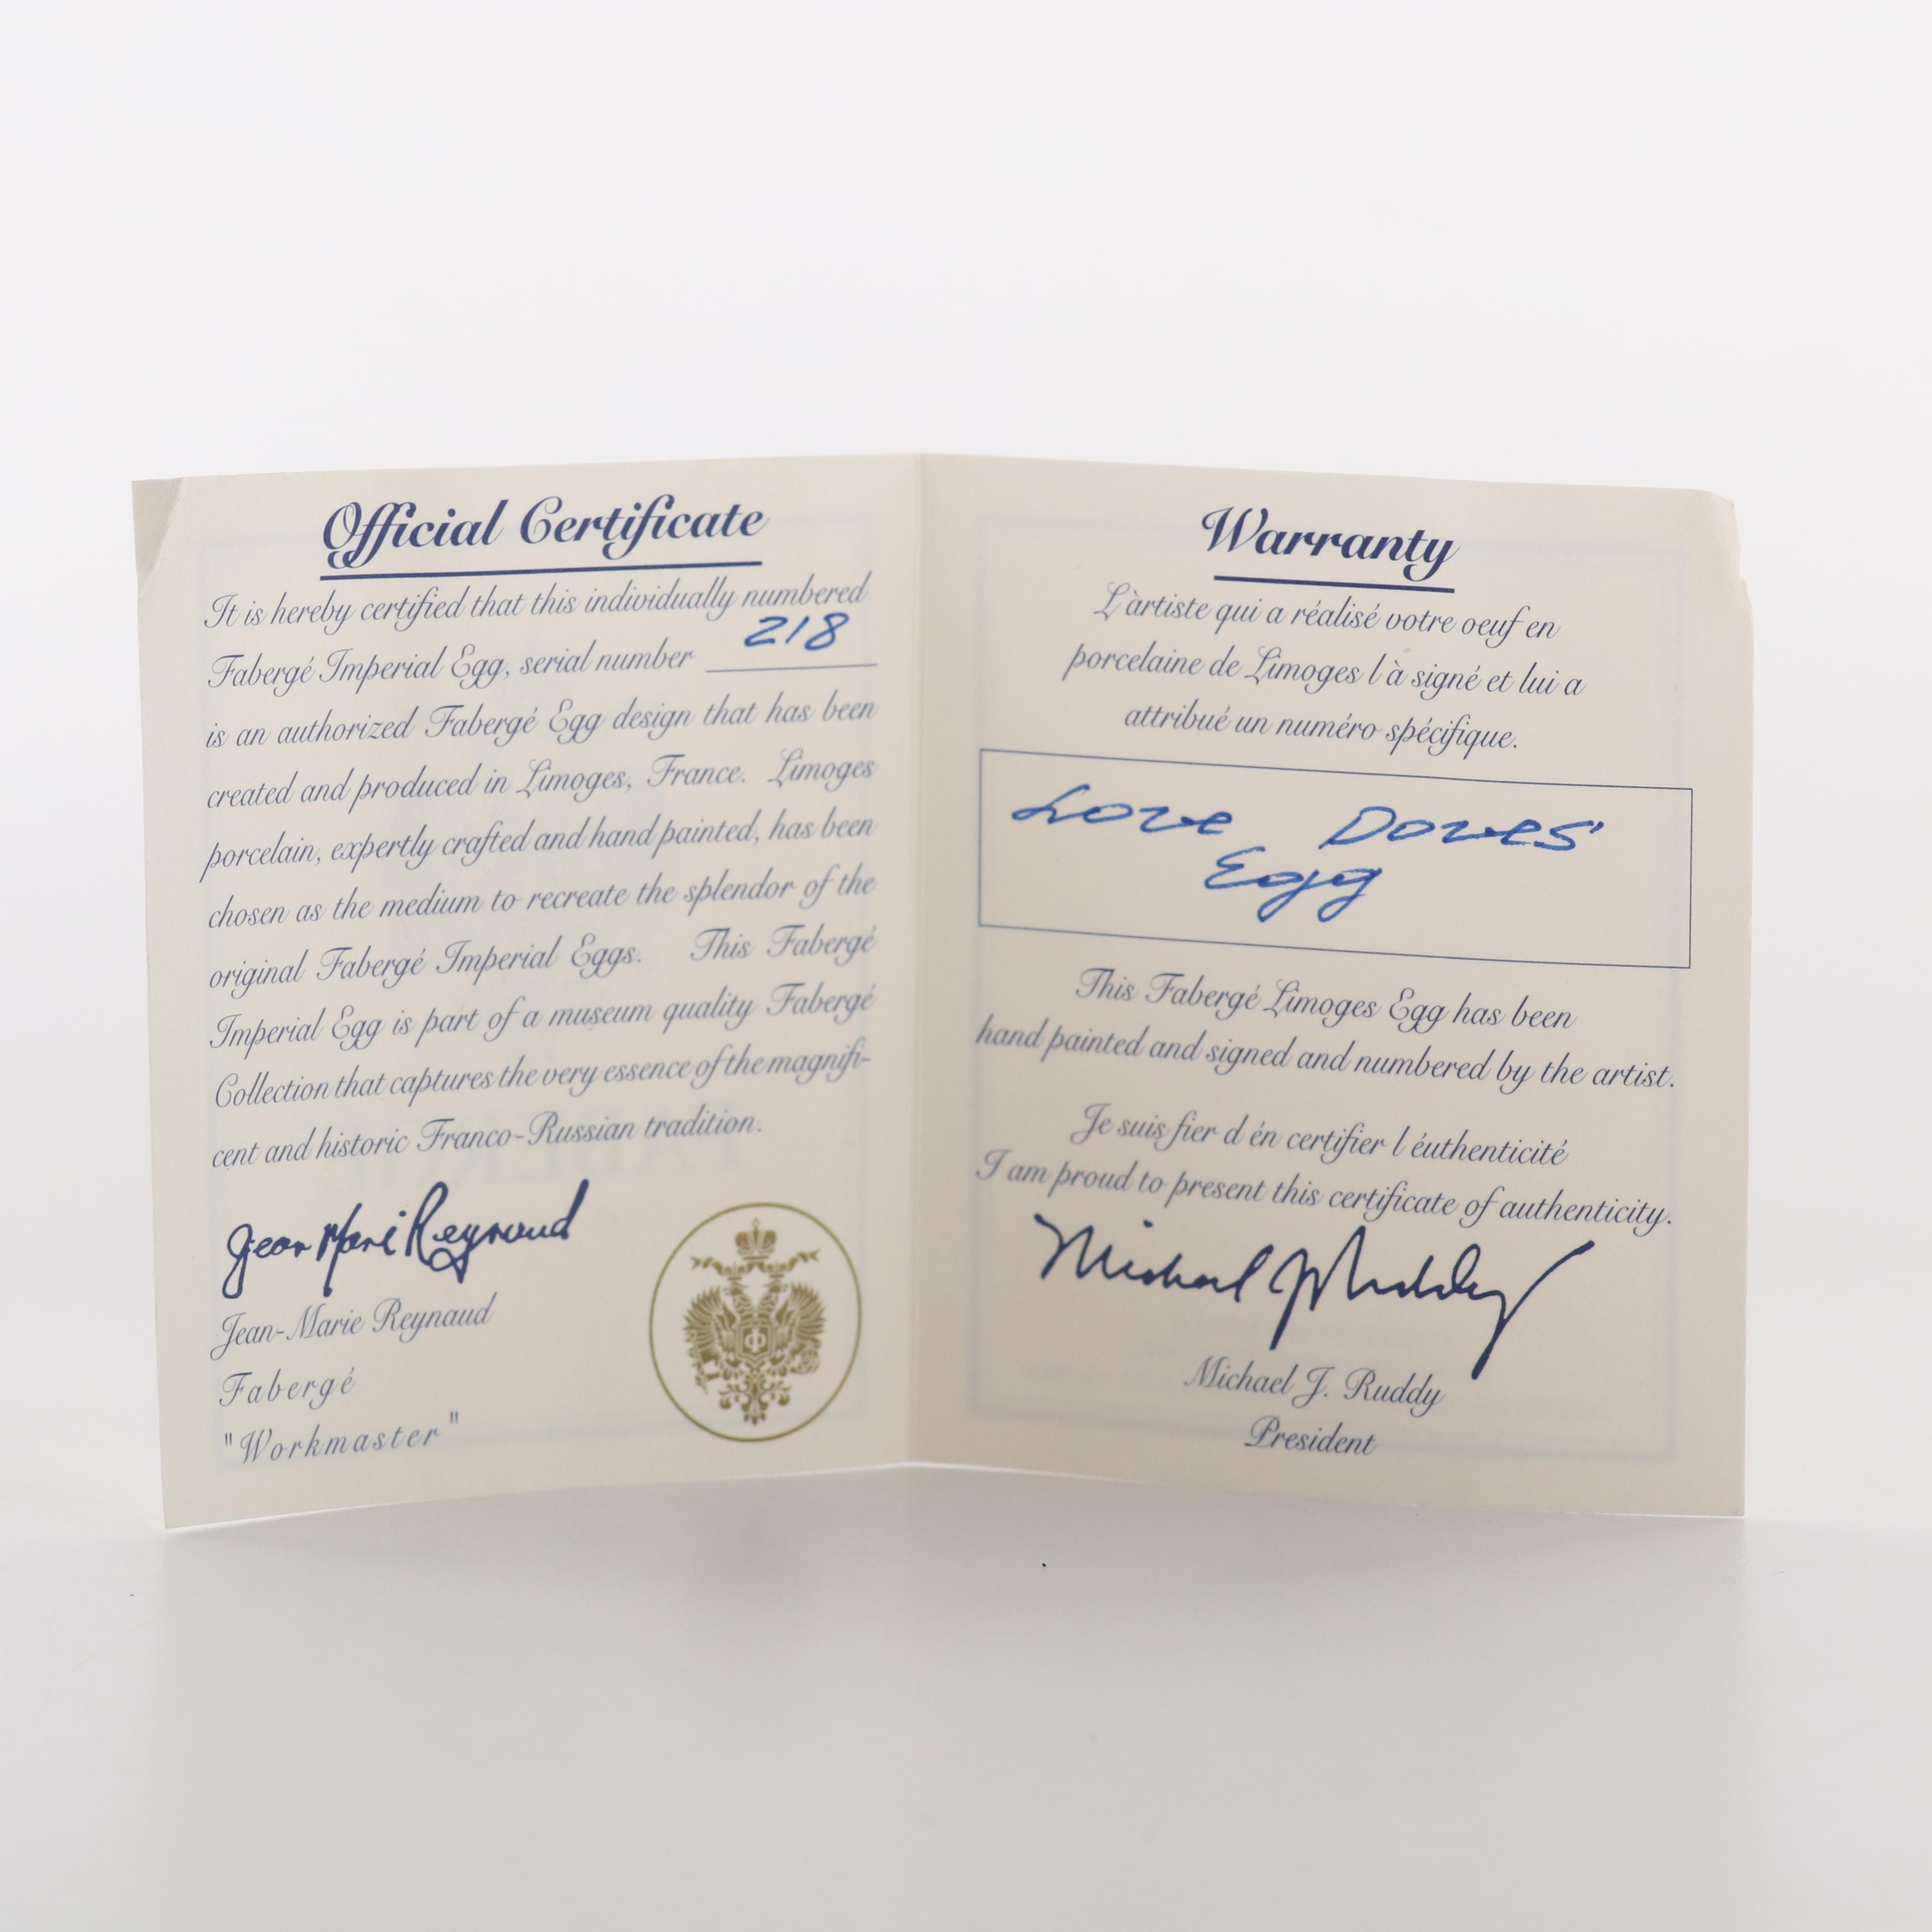 Official Certificate
It is hereby certified that this individually numbered
Fabergé Imperial Egg, serial number 218
is an authorized Fabergé Egg design that has been
created and produced in Limoges, France. Limoges
porcelain, expertly crafted and hand painted, has been
chosen as the medium to recreate the splendor of the
original Fabergé Imperial Eggs. This Fabergé
Imperial Egg is part of a museum quality Fabergé
Collection that captures the very essence of the magnifi-
cent and historic Franco-Russian tradition.
Jean Marie Reynaud
Jean-Marie Reynaud
Fabergé
"Workmaster"
Ф
Warranty
L'àrtiste qui a réalisé votre oeuf en
porcelaine de Limoges l'à signé et lui a
attribué un numéro spécifique.
Love Doves'
Egg
This Fabergé Limoges Egg has been
hand painted and signed and numbered by the artist.
Je suis fier d én certifier l éuthenticité
I am proud to present this certificate of authenticity.
Michael J Ruddy
Michael J. Ruddy
President